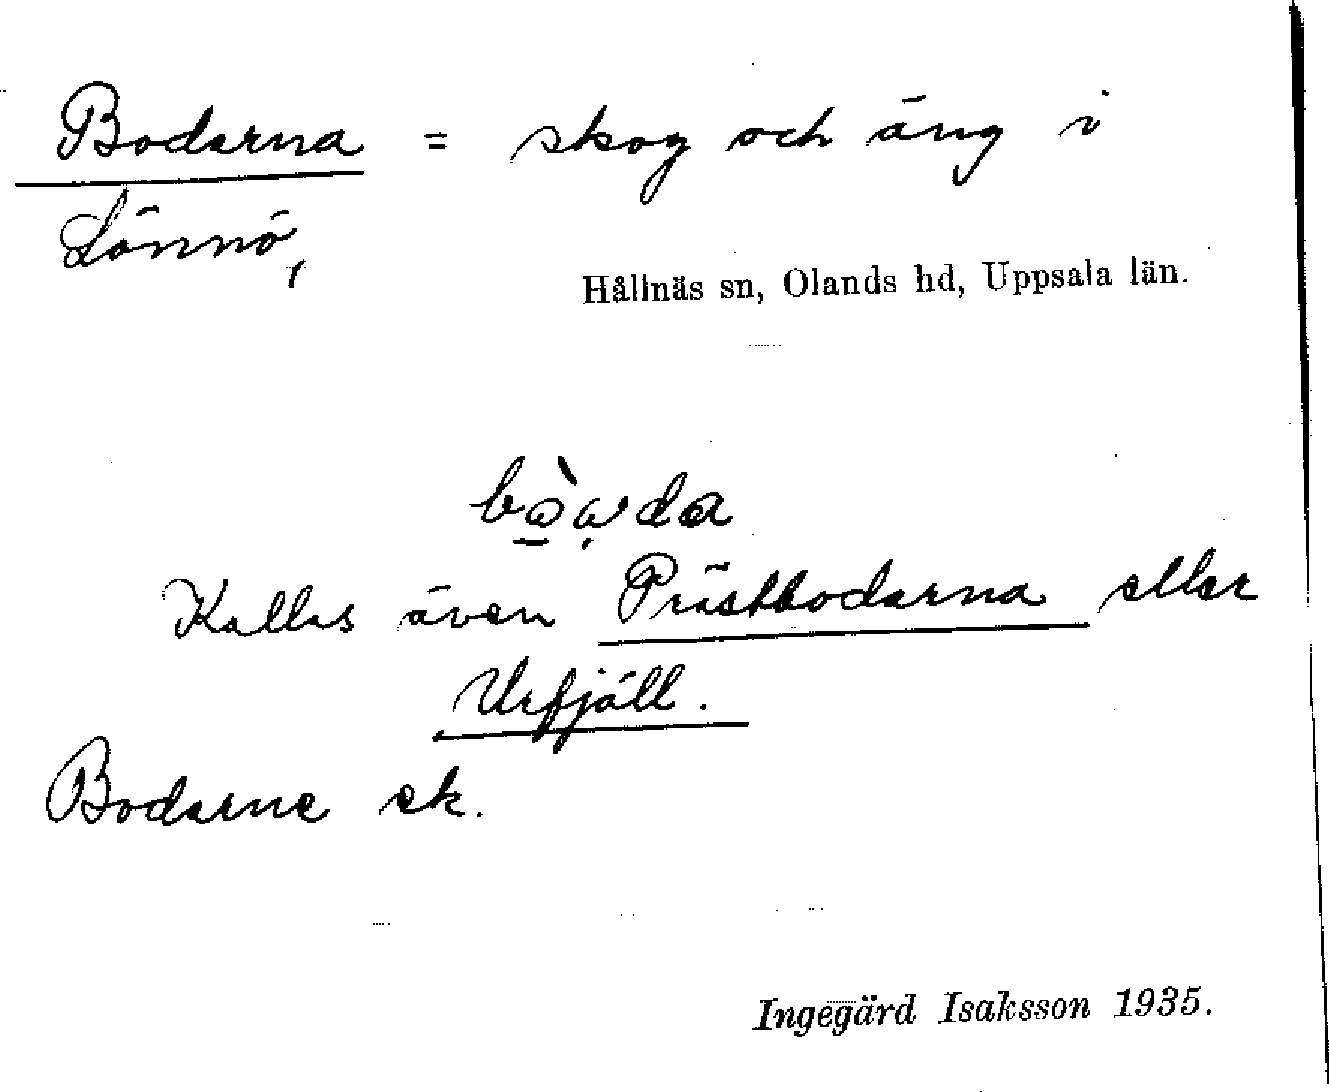 Bodarna = skog och äng i
Lönnö,
Hållnäs sn, Olands hd, Uppsala län.
Kallas även Prästbodarna eller
Urfjäll.
Bodarne ek.
Ingegärd Isaksson 1935.